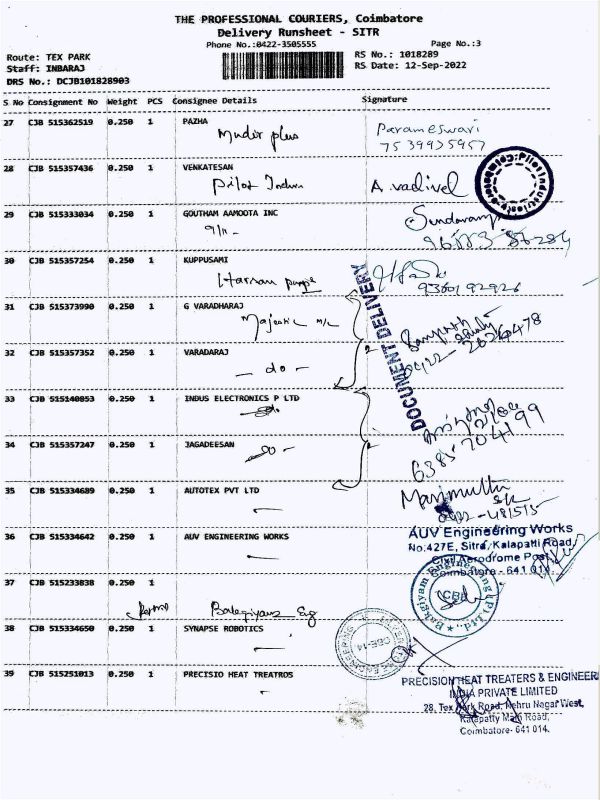 THE PROFESSIONAL COURIERS, Coimbatore
Delivery Runsheet - SITR
Phone No.:0422-3505555 Page No.:3
Route: TEX PARK RS No.: 1018289
Staff: INBARAJ RS Date: 12-Sep-2022
DRS No.: DCJB101828903
S No Consignment No Weight PCS Consignee Details Signature
27 CJB 515362519 0.250 1 PAZHA Parameswari
28 CJB 515357436 0.250 1 VENKATESAN
Pilot A. vadivel
29 CJB 515333034 0.250 1 GOUTHAM AAMOOTA INC
30 CJB 515357254 0.250 1 KUPPUSAMI
9360192926
DOCUMENT DELIVERY
31 CJB 515373990 0.250 1 G VARADHARAJ
Majestic Sampath
32 CJB 515357352 0.250 1 VARADARAJ
- do -
33 CJB 515140853 0.250 1 INDUS ELECTRONICS P LTD
34 CJB 515357247 0.250 1 JAGADEESAN
- do -
35 CJB 515334689 0.250 1 AUTOTEX PVT LTD Marimuthu
36 CJB 515334642 0.250 1 AUV ENGINEERING WORKS
AUV Engineering Works
No:427E, Sitra, Kalapatti Road,
Civil Aerodrome Post
Coimbatore - 641 014.
37 CJB 515233838 0.250 1
38 CJB 515334650 0.250 1 SYNAPSE ROBOTICS
CBE-14
39 CJB 515251013 0.250 1 PRECISIO HEAT TREATROS
PRECISION HEAT TREATERS & ENGINEER
INDIA PRIVATE LIMITED
28, Tex Park Road, Nehru Nagar West,
Kalapatty Main Road,
Coimbatore- 641 014.